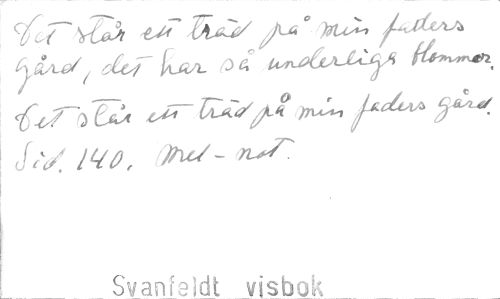 Det står ett träd på min faders
gård, det har så underliga blommor.
Det står ett träd på min faders gård.
Sid. 140. Mel-not.
Svanfeldt visbok